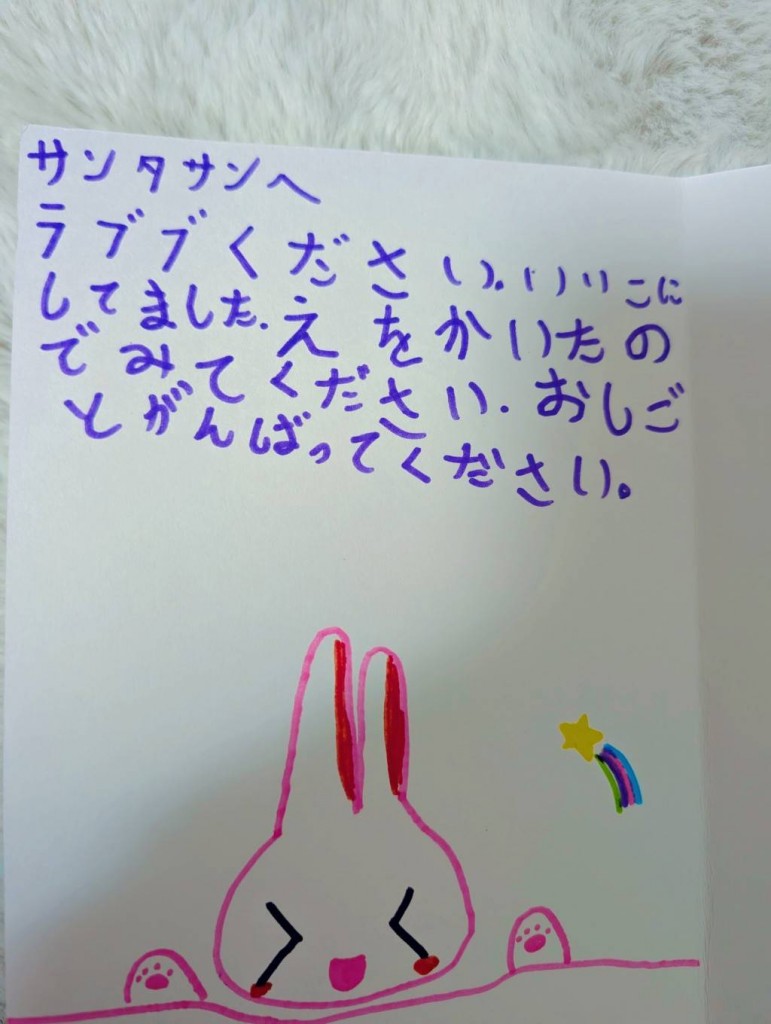 サンタサンへ
ラブブください。いいこに
してました.えをかいたの
でみてください.おしご
とがんばってください。